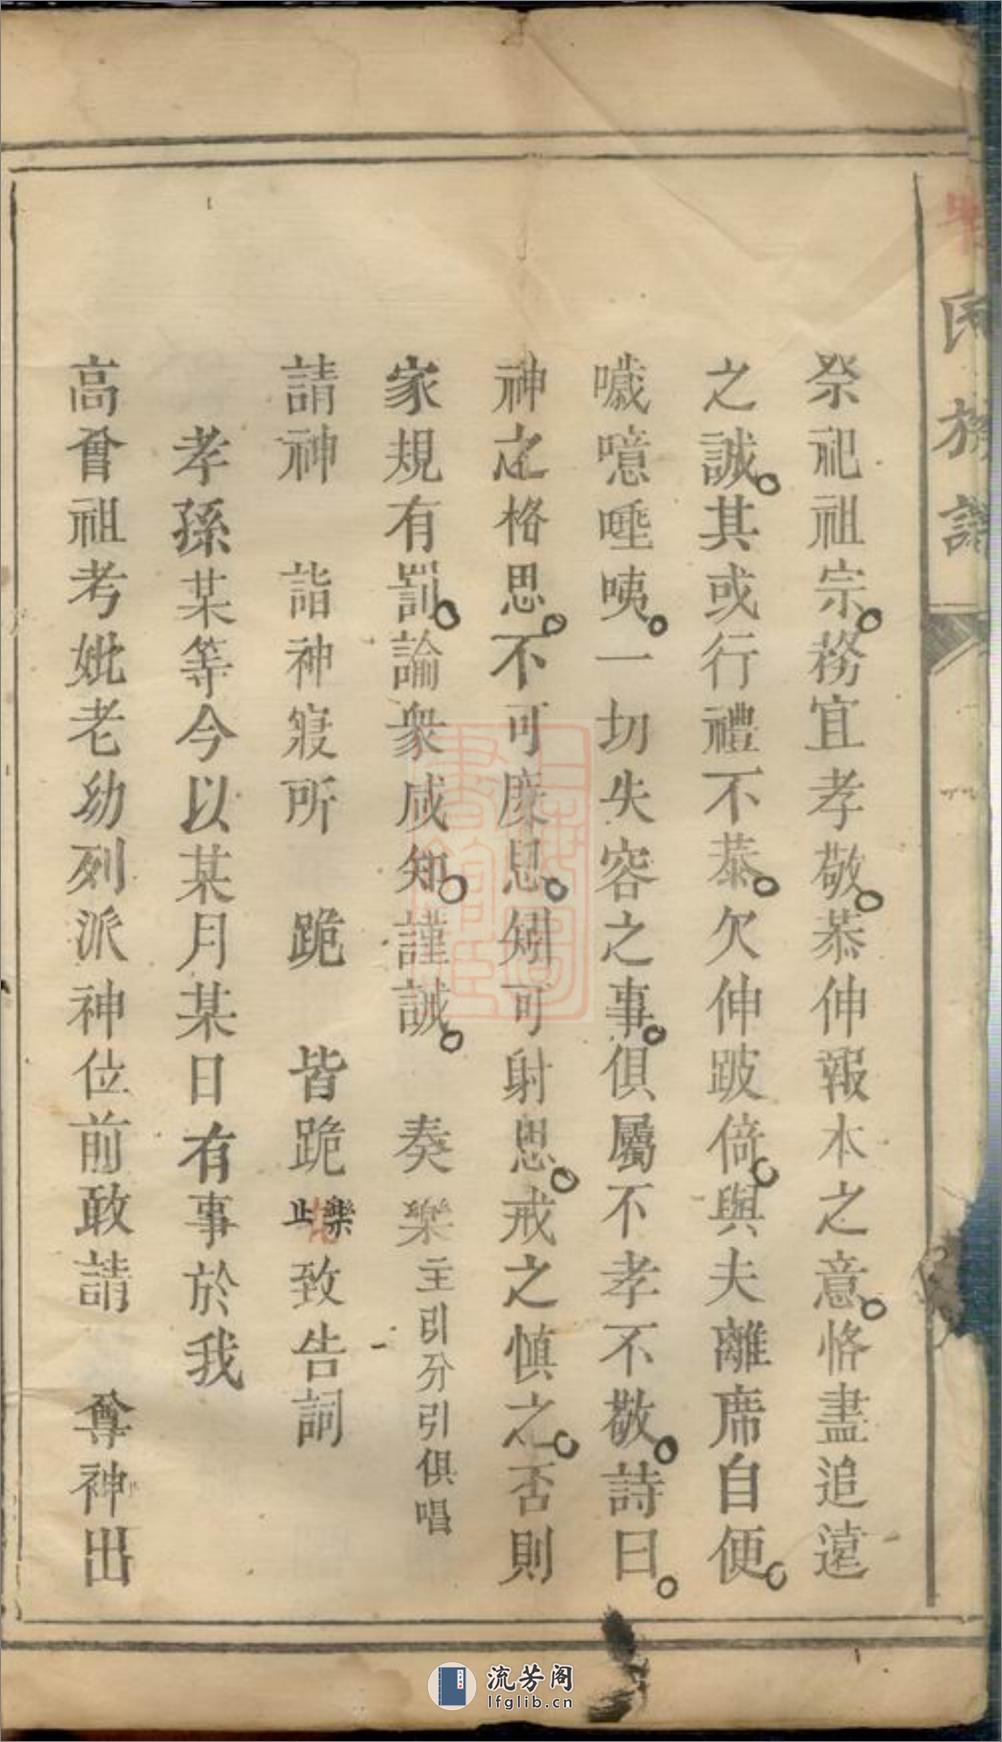 氏族譜
祭祀祖宗。務宜孝敬。恭伸報本之意。恪盡追遠
之誠。其或行禮不恭。欠伸跛倚。與夫離席自便。
噦噫唾咦。一切失容之事。俱屬不孝不敬。詩曰。
神之格思。不可度思。矧可射思。戒之慎之。否則
家規有罰。論衆咸知。謹誠。 奏樂主引分引俱唱
請神 詣神寢所 跪 皆跪樂止致告詞
孝孫某等今以某月某日有事於我
高曾祖考妣老幼列派神位前敢請 尊神出
上海圖書館藏
流芳阁
lfglib.cn